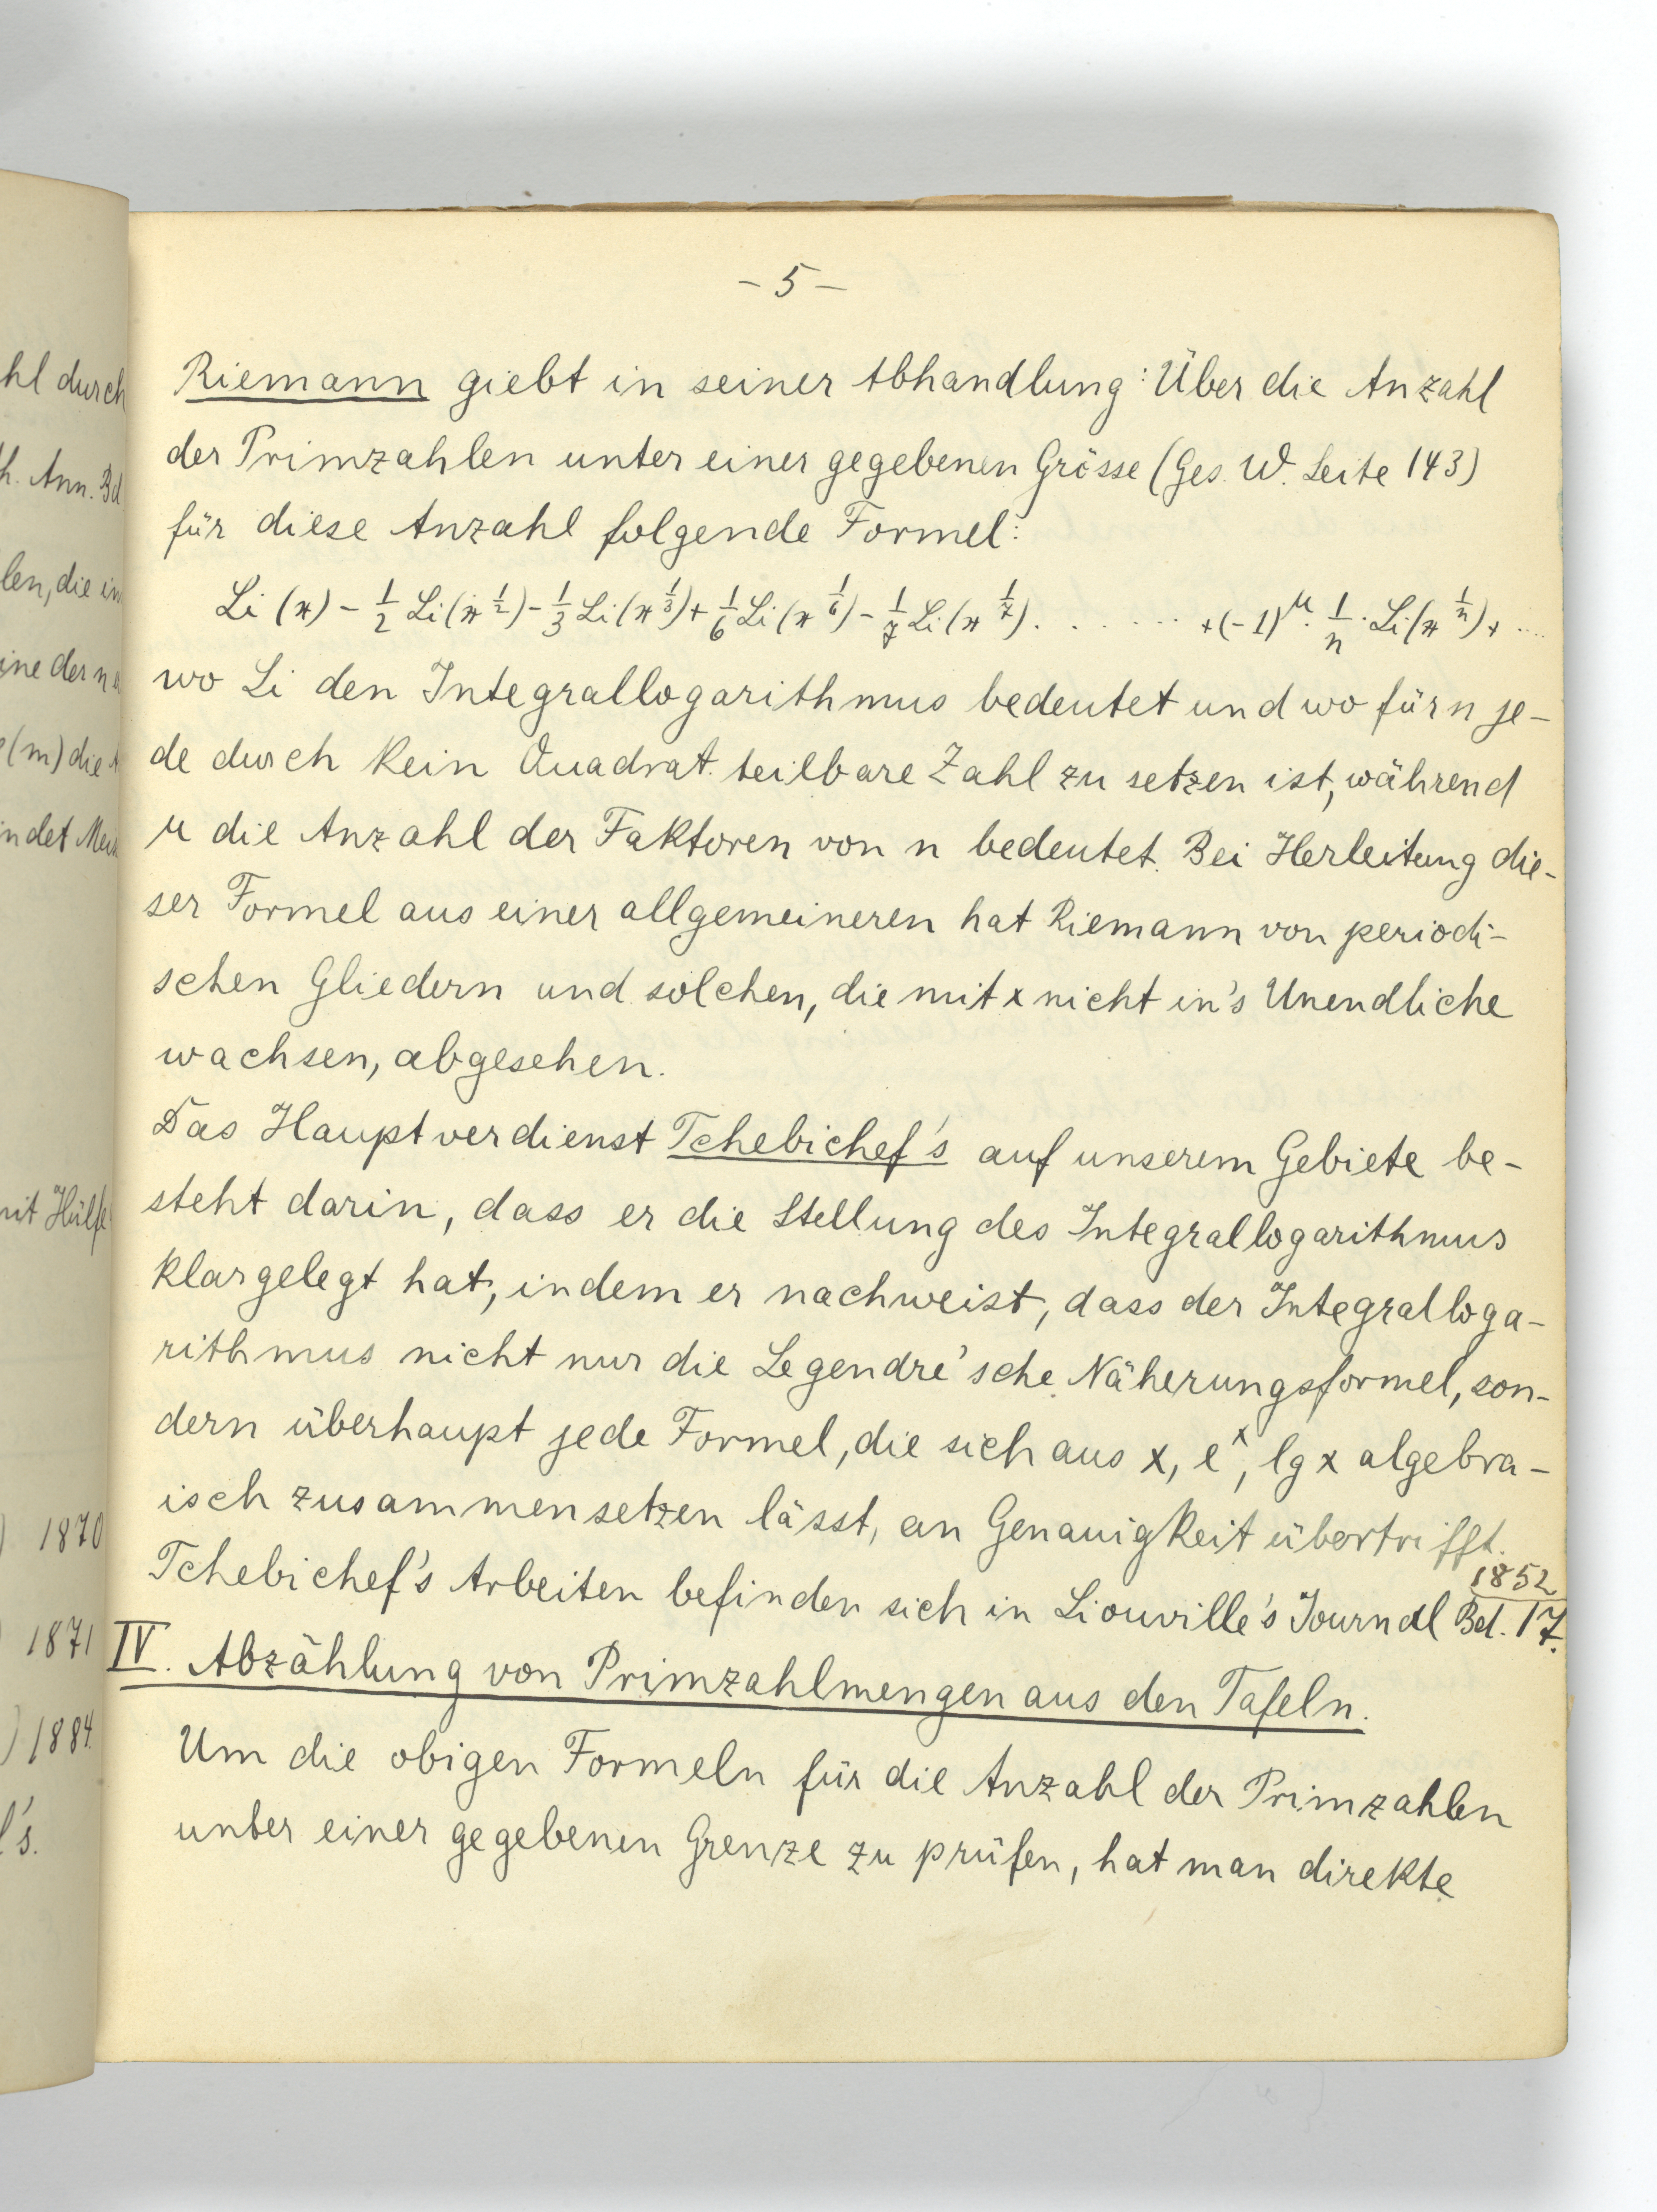 hl durch
h. Ann. Bd
len, die in
ine der n
(m) die
ndet
mit Hülfe
) 1870
) 1871
) 1884.
l's.
- 5 -
Riemann giebt in seiner Abhandlung: Über die Anzahl
der Primzahlen unter einer gegebenen Grösse (Ges. W. Seite 143)
für diese Anzahl folgende Formel:
Li (x) - 1/2 Li (x^1/2) - 1/3 Li (x^1/3) + 1/6 Li (x^1/6) - 1/7 Li (x^1/7) . . . . . . . + (-1)^μ . 1/n . Li (x^1/n) + ....
wo Li den Integrallogarithmus bedeutet und wo für n je-
de durch kein Quadrat teilbare Zahl zu setzen ist, während
μ die Anzahl der Faktoren von n bedeutet. Bei Herleitung die-
ser Formel aus einer allgemeineren hat Riemann von periodi-
schen Gliedern und solchen, die mit x nicht in's Unendliche
wachsen, abgesehen.
Das Hauptverdienst Tchebichef's auf unserem Gebiete be-
steht darin, dass er die Stellung des Integrallogarithmus
klargelegt hat, indem er nachweist, dass der Integralloga-
rithmus nicht nur die Legendre'sche Näherungsformel, son-
dern überhaupt jede Formel, die sich aus x, e^x, lg x algebra-
isch zusammensetzen lässt, an Genauigkeit übertrifft.
1852
Tchebichef's Arbeiten befinden sich in Liouville's Journal Bd. 17.
IV. Abzählung von Primzahlmengen aus den Tafeln.
Um die obigen Formeln für die Anzahl der Primzahlen
unter einer gegebenen Grenze zu prüfen, hat man direkte